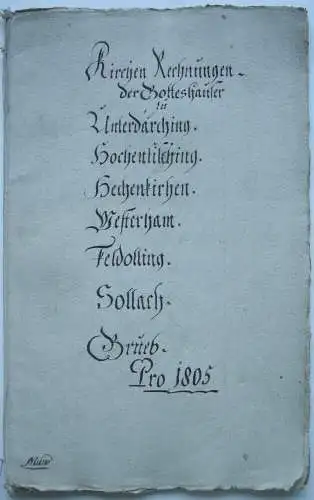 Kirchen Rechnungen
der Gotteshäuser
zu
Unterdärching.
Hochenkirchen.
Westerham.
Feldolling.
Sollach.
Grueb.
Pro 1805